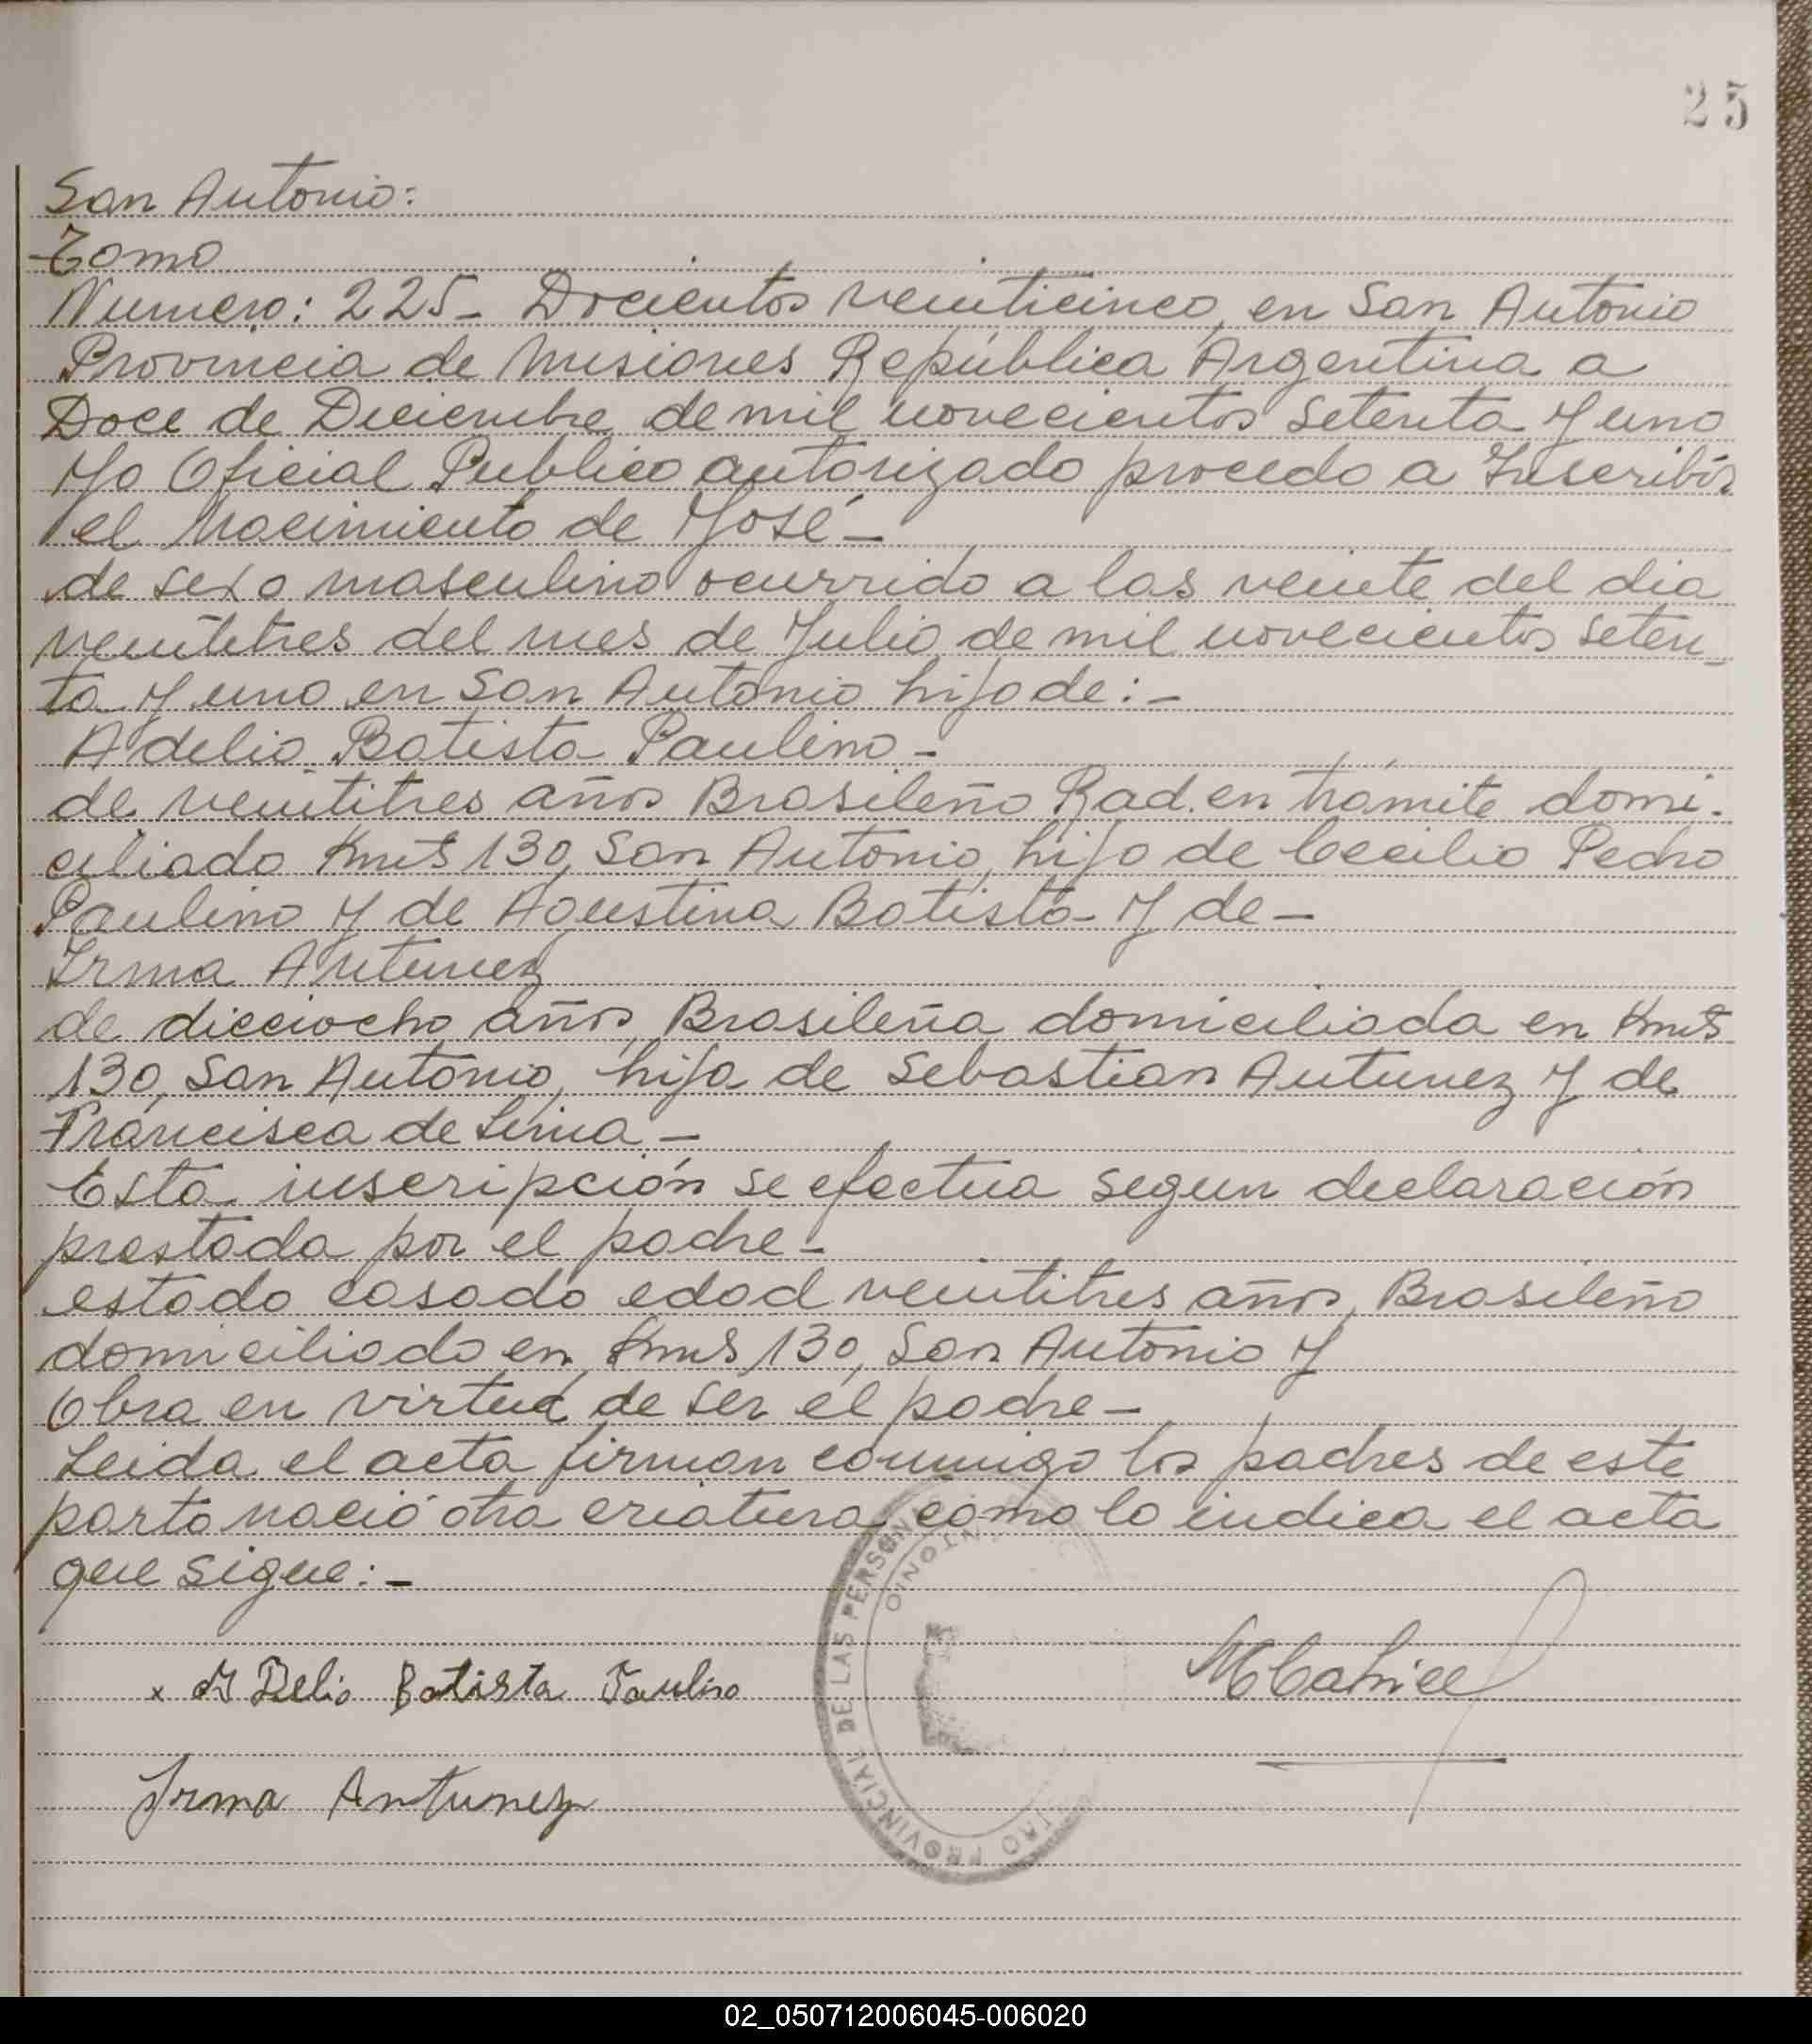 25
San Antonio:
Tomo
Numero: 225- Docientos veinticinco, en San Antonio
Provincia de Misiones República Argentina a
Doce de Diciembre de mil novecientos setenta y uno
Yo Oficial Publico autorizado procedo a Inscribir
el Nacimiento de José-
de sexo masculino ocurrido a las veinte del dia
veintitres del mes de Julio de mil novecientos seten-
ta y uno en San Antonio hijo de:-
Adelio Batista Paulino-
de veintitres años Brasileño Rad. en trámite domi-
ciliado Kms 130, San Antonio, hijo de Cecilio Pedro
Paulino y de Agustina Batista y de-
Irma Antunez
de dieciocho años, Brasileña domiciliada en Kms
130, San Antonio, hija de Sebastian Antunez y de
Francisca de Lima-
Esta inscripción se efectua segun declaración
prestada por el padre-
estado casado edad veintitres años, Brasileño
domiciliado en Kms 130, San Antonio y
Obra en virtud de ser el padre-
Leida el acta firman conmigo los padres de este
parto nació otra criatura como lo indica el acta
que sigue:-
x A Delio Batista Paulino
Irma Antunez
PROVINCIAL DE LAS PERSON
02_050712006045-006020